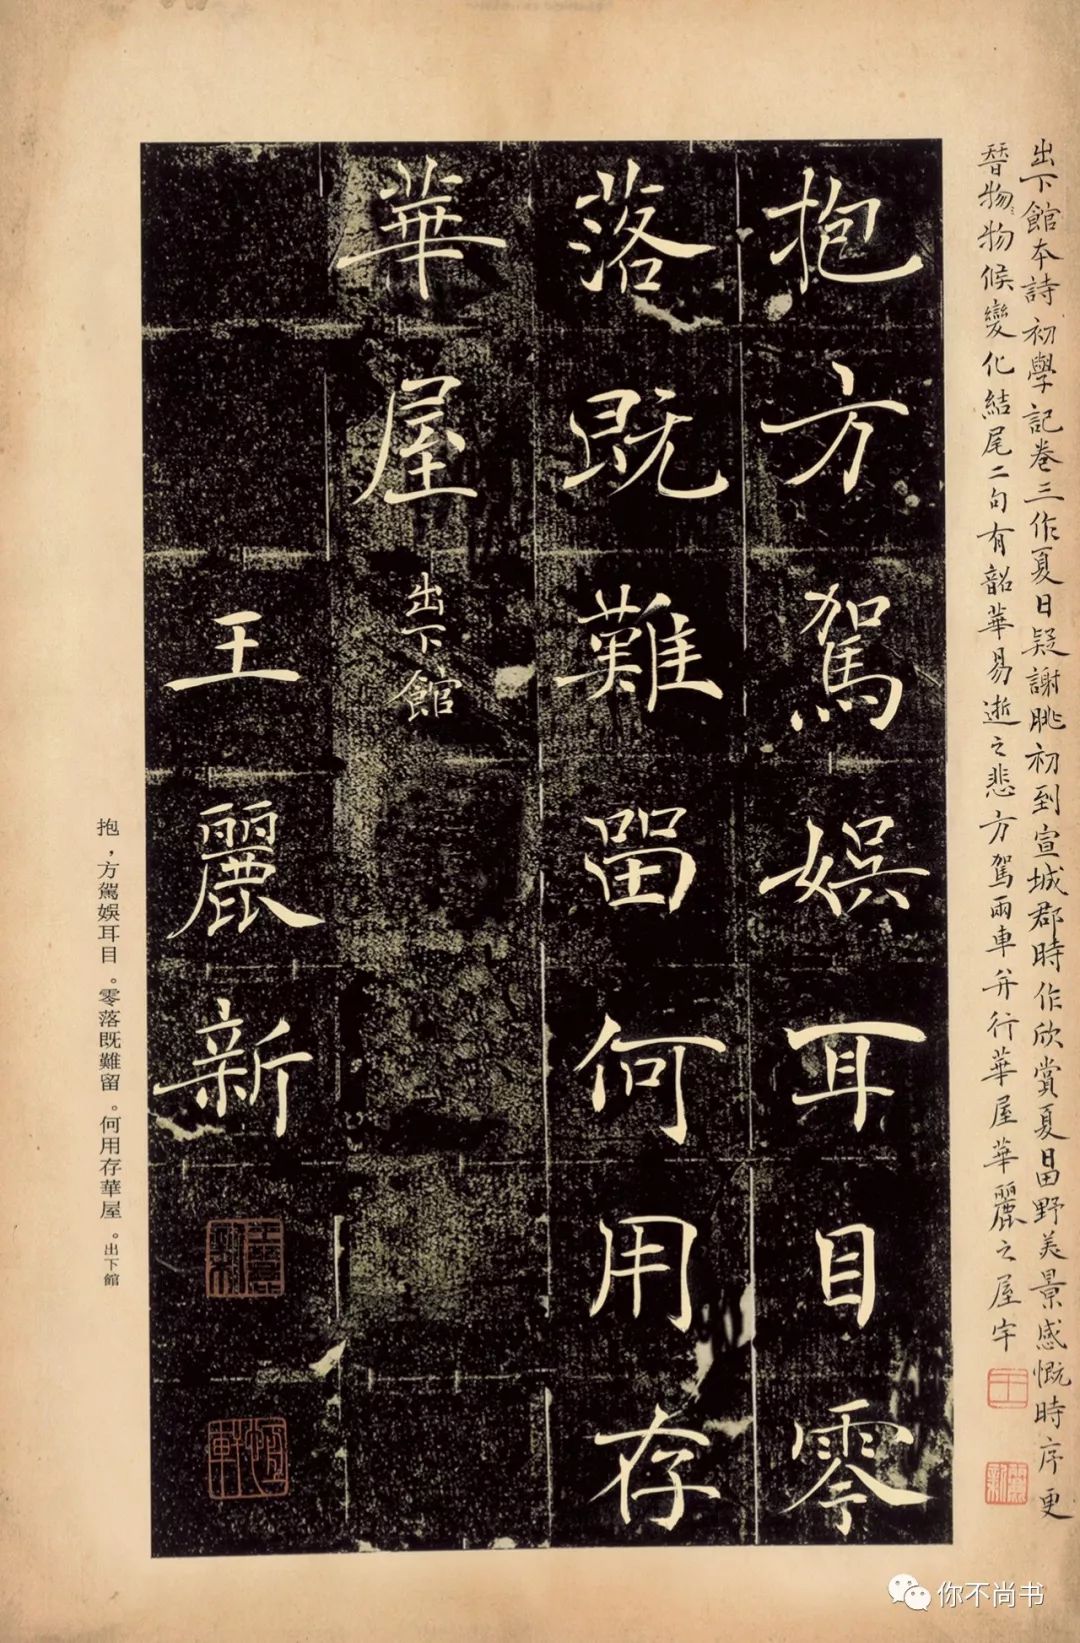 出下館本詩初學記卷三作夏日疑謝眺初到宣城郡時作欣賞夏日田野美景感慨時序更
替物物候變化結尾二句有韶華易逝之悲方駕兩車并行華屋華麗之屋宇
抱方駕娛耳目零
落既難留何用存
華屋出下館
王麗新
抱，方駕娛耳目。零落既難留。何用存華屋。出下館
你不尚书